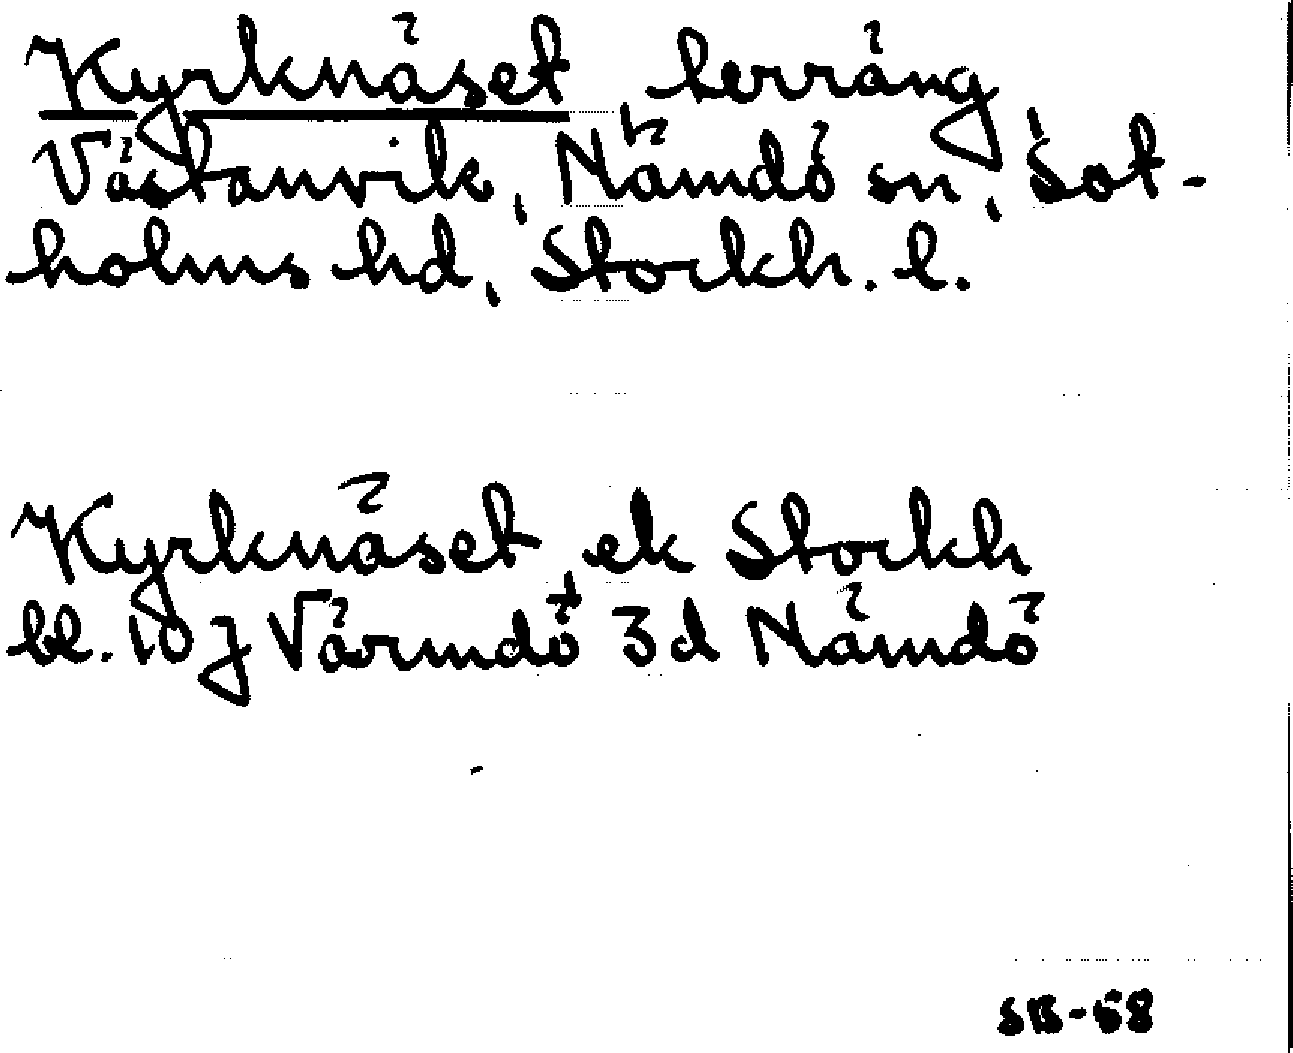 Kyrknäset, terräng
Västanvik, Nämdö sn, Sot-
holms hd, Stockh. l.
Kyrknäset, ek Stockh
bl. 10 J Värmdö 3d Nämdö
SB-68